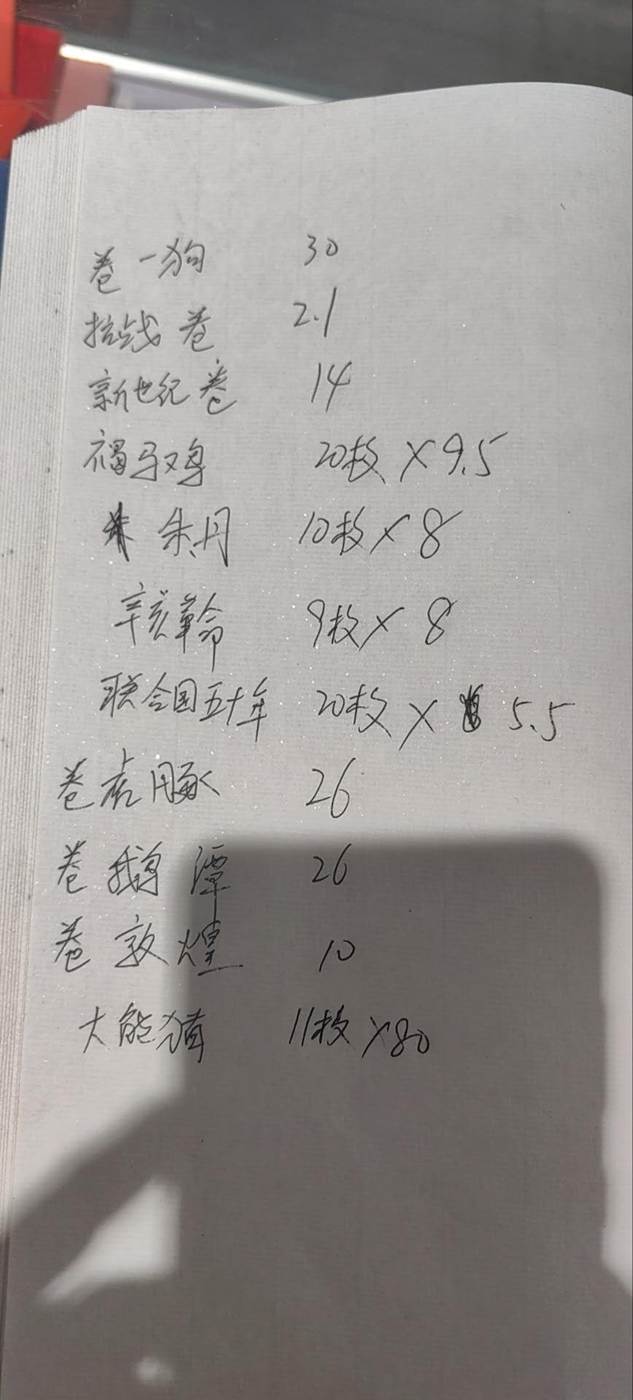 卷一狗 30
抗战卷 2.1
新世纪卷 14
福马鸡 20枚×9.5
朱.丹 10枚×8
辛亥革命 9枚×8
联合国五十年 20枚× 5.5
卷虎豚 26
卷鹅潭 26
卷敦煌 10
大熊猫 11枚×80